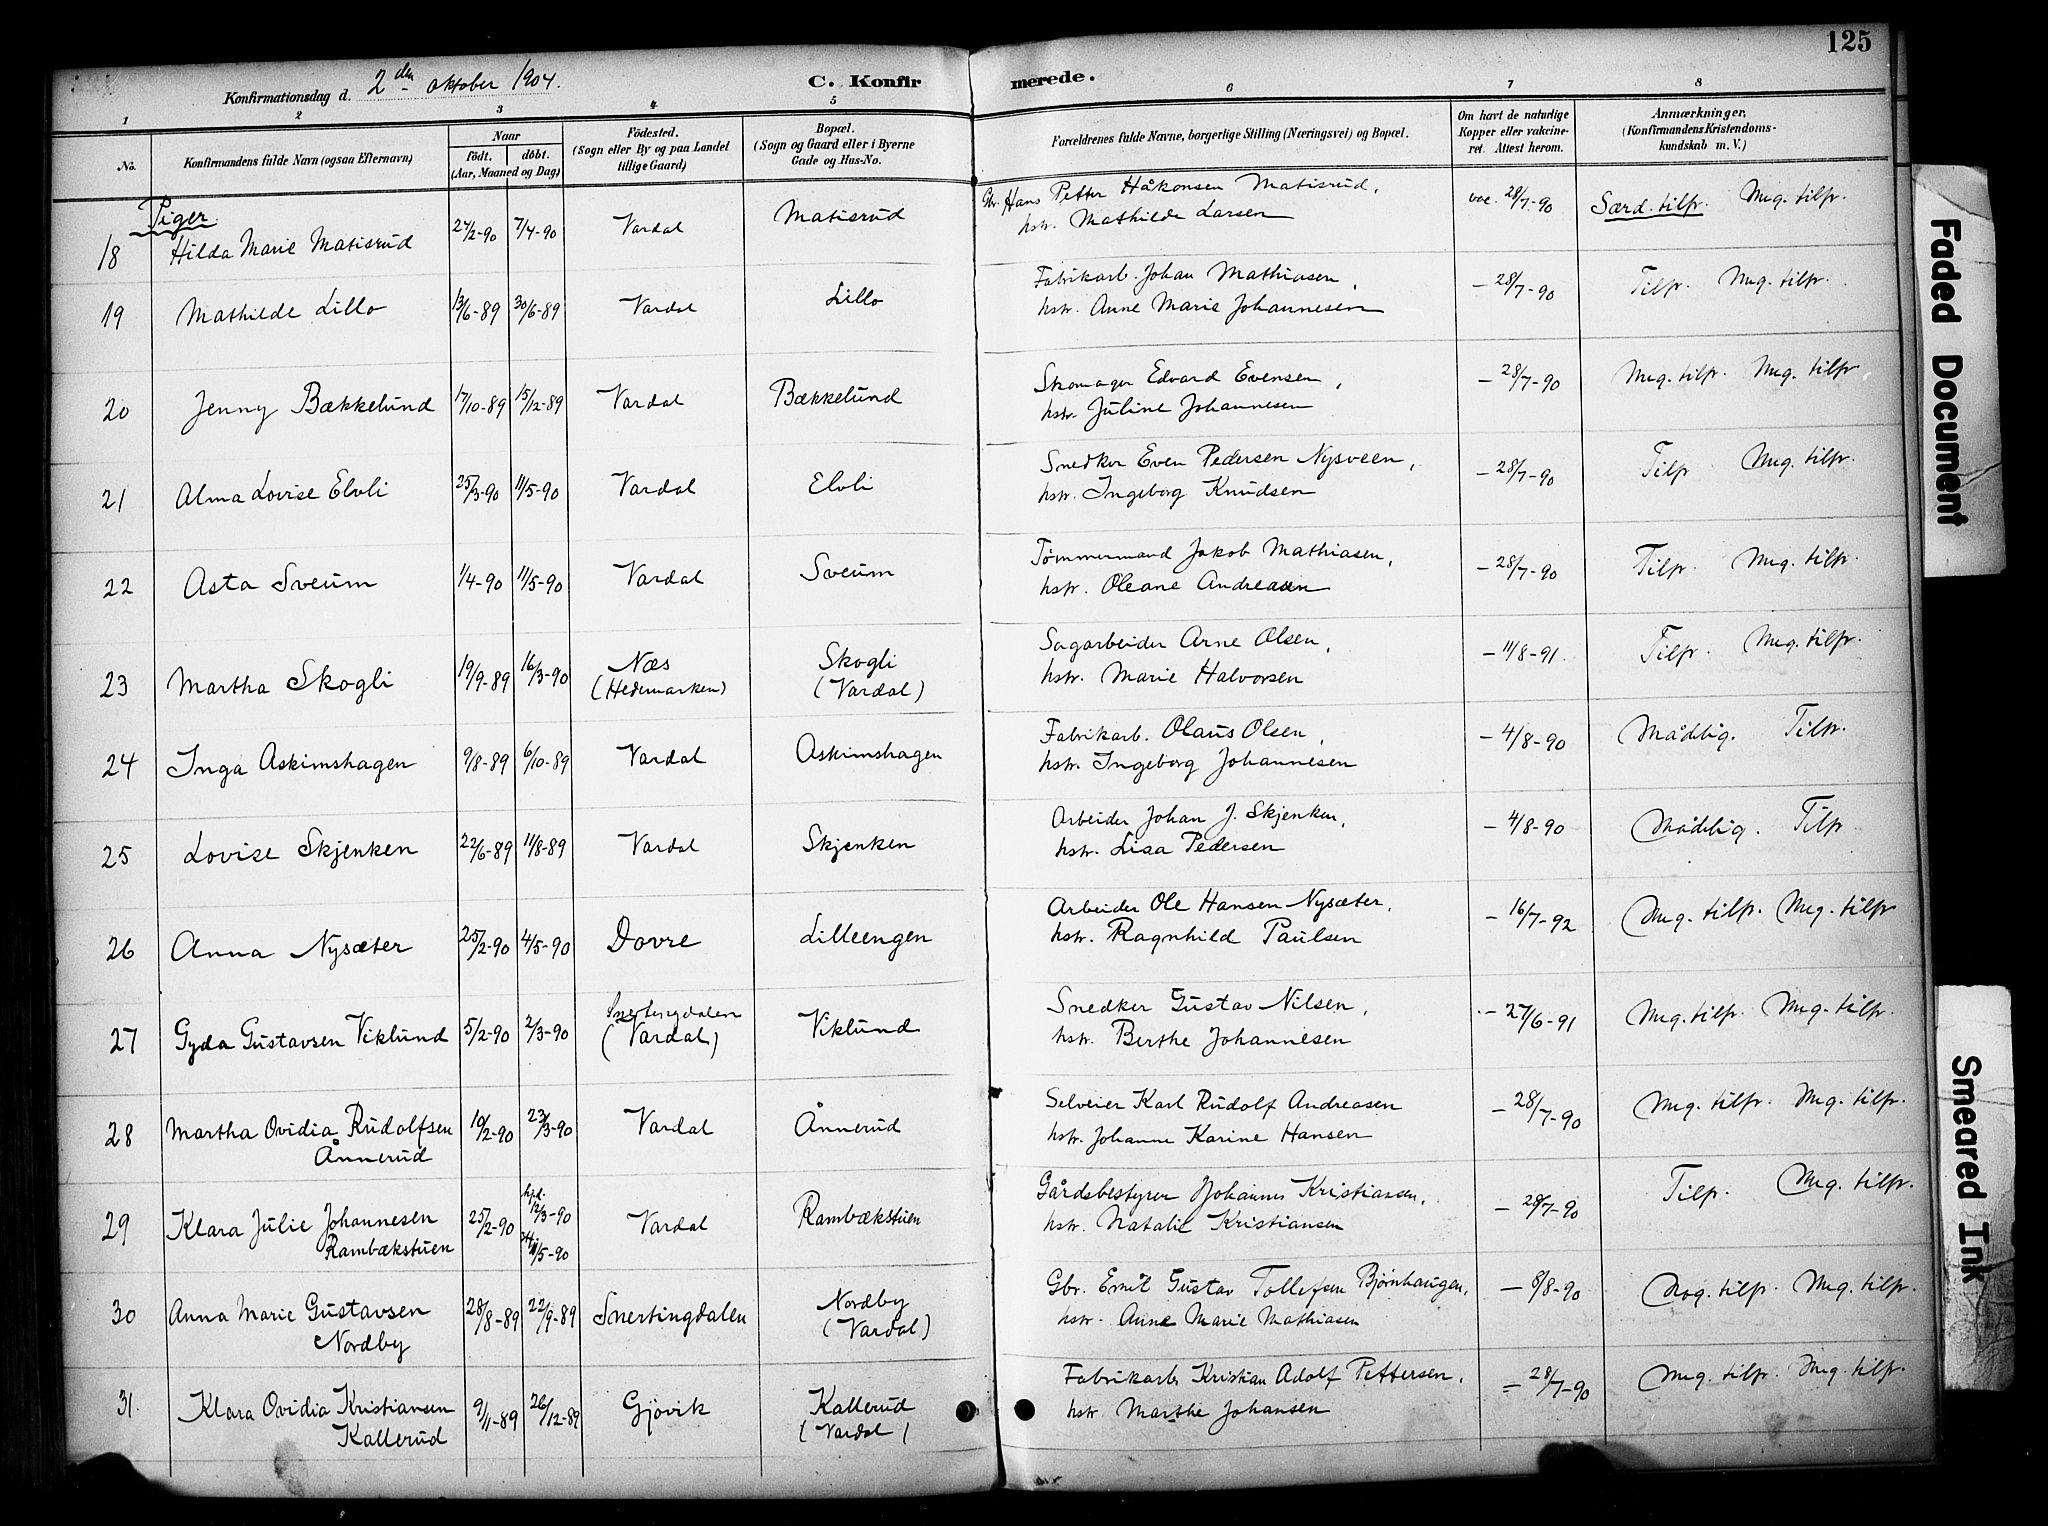 125
Konfirmationsdag d. 2den oktober 1904.
C. Konfirmerede.
1 2 3 4 5 6 7 8
No.
Konfirmandens fulde Navn (ogsaa Efternavn)
Naar
födt. döbt.
(Aar, Maaned og Dag)
Födested.
(Sogn eller By og paa Landet
tillige Gaard)
Bopæl.
(Sogn og Gaard eller i Byerne
Gade og Hus-No.
Forældrenes fulde Navne, borgerlige Stilling (Næringsvei) og Bopæl.
Om havt de naturlige
Kopper eller vakcine-
ret. Attest herom.
Anmærkninger.
(Konfirmandens Kristendoms-
kundskab m. V.)
Piger
18 Hilda Marie Matisrud 24/2-90 7/4-90 Vardal Matisrud Gbr. Hans Petter Håkonsen Matisrud, vac. 28/7-90 Særd. tilfr. Meg. tilfr.
hstr. Mathilde Larsen
19 Mathilde Lillo 13/6-89 30/6-89 Vardal Lillo Fabrikarb. Johan Mathiasen, – 28/7-90 Tilfr. Meg. tilfr.
hstr. Anne Marie Johannesen
20 Jenny Bækkelund 17/10-89 15/12-89 Vardal Bækkelund Skomager Edvard Evensen, – 28/7-90 Meg. tilfr. Meg. tilfr
hstr. Juline Johannesen
21 Alma Lovise Elvli 25/3-90 11/5-90 Vardal Elvli Snedker Even Pedersen Nysveen, – 28/7-90 Tilfr Meg. tilfr.
hstr. Ingeborg Knudsen
22 Asta Sveum 1/4-90 11/5-90 Vardal Sveum Tømmermand Jakob Mathiasen, – 28/7-90 Tilfr. Meg. tilfr.
hstr. Oleane Andreasen
23 Martha Skogli 19/9-89 16/3-90 Næs Skogli Sagarbeider Arne Olsen, – 11/8-91. Tilfr. Meg. tilfr.
(Hedemarken) (Vardal) hstr. Marie Halvorsen
24 Inga Askimshagen 9/8-89 6/10-89 Vardal Askimshagen Fabrikarb. Olaus Olsen, – 4/8-90 Mådelig. Tilfr.
hstr. Ingeborg Johannesen
25 Lovise Skjenken 22/6-89 11/8-89 Vardal Skjenken Arbeider Johan J. Skjenken, – 4/8-90 Mådelig. Tilfr
hstr. Lisa Pedersen
26 Anna Nysæter 25/2-90 4/5-90 Dovre Lilleengen Arbeider Ole Hansen Nysæter, – 16/7-92 Meg. tilfr. Meg. tilfr
hstr. Ragnhild Paulsen
27 Gyda Gustavsen Viklund 5/2-90 2/3-90 Snertingdalen Viklund Snedker Gustav Nilsen, – 27/6-91 Meg. tilfr. Meg. tilfr.
(Vardal) hstr. Berthe Johannesen
28 Martha Ovidia Rudolfsen 10/2-90 23/3-90 Vardal Ånnerud Selveier Karl Rudolf Andreasen – 28/7-90 Meg. tilfr. Meg. tilfr.
Ånnerud hstr. Johanne Karine Hansen
29 Klara Julie Johannesen 25/2-90 hjd. 12/3-90 Vardal Rambækstuen Gårdsbestyrer Johannes Kristiansen, – 28/7-90 Tilfr. Meg. tilfr.
Rambækstuen 11/5-90 hstr. Natalie Kristiansen
30 Anna Marie Gustavsen 28/8-89 22/9-89 Snertingdalen Nordby Gbr. Emil Gustav Tollefsen Bjørnhaugen, – 8/8-90 Nog. tilfr. Meg. tilfr.
Nordby (Vardal) hstr. Anne Marie Mathiasen
31. Klara Ovidia Kristiansen 9/11-89 26/12-89 Gjövik Kallerud Fabrikarb. Kristian Adolf Pettersen, – 28/7-90 Meg. tilfr. Meg. tilfr.
Kallerud (Vardal) hstr. Marthe Johansen
Faded Document
Smeared Ink